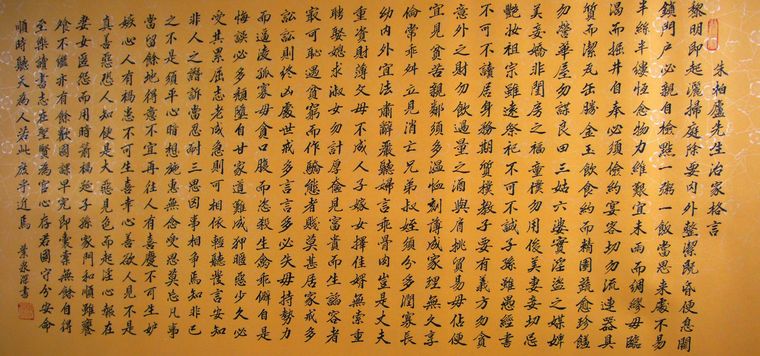 朱柏廬先生治家格言
黎明即起灑掃庭除要內外整潔既昏便息關
鎖門戶必親自檢點一粥一飯當思來處不易
半絲半縷恆念物力維艱宜未雨而綢繆毋臨
渴而掘井自奉必須儉約宴客切勿流連器具
質而潔瓦缶勝金玉飲食約而精園蔬愈珍饈
勿營華屋勿謀良田三姑六婆實淫盜之媒婢
美妾嬌非閨房之福童僕勿用俊美妻妾切忌
艷妝祖宗雖遠祭祀不可不誠子孫雖愚經書
不可不讀居身務期質樸教子要有義方勿貪
意外之財勿飲過量之酒與肩挑貿易毋佔便
宜見貧苦親鄰須多溫恤刻薄成家理無久享
倫常乖舛立見消亡兄弟叔姪須分多潤寡長
幼內外宜法肅辭嚴聽婦言乖骨肉豈是丈夫
重資財薄父母不成人子嫁女擇佳婿無索重
聘娶媳求淑女勿計厚奩見富貴而生諂容者
最可恥遇貧窮而作驕態者賤莫甚居家戒多
訟訟則終凶處世戒多言言多必失毋持勢力
而逼凌孤寡毋貪口腹而恣殺生禽乖僻自是
悔誤必多頹惰自甘家道難成狎暱惡少久必
受其累屈志老成急則可相依輕聽發言安知
非人之譖訴當忍耐三思因事相爭焉知非己
之不是須平心暗想施惠無念受恩莫忘凡事
當留餘地得意不宜再往人有喜慶不可生妒
嫉心人有禍患不可生喜幸心善欲人見不是
真善惡恐人知便是大惡見色而起淫心報在
妻女匿怨而用暗箭禍延子孫家門和順雖饔
飧不繼亦有餘歡國課早完即囊橐無餘自得
至樂讀書志在聖賢為官心存君國守分安命
順時聽天為人若此庶乎近焉 葉泉深書